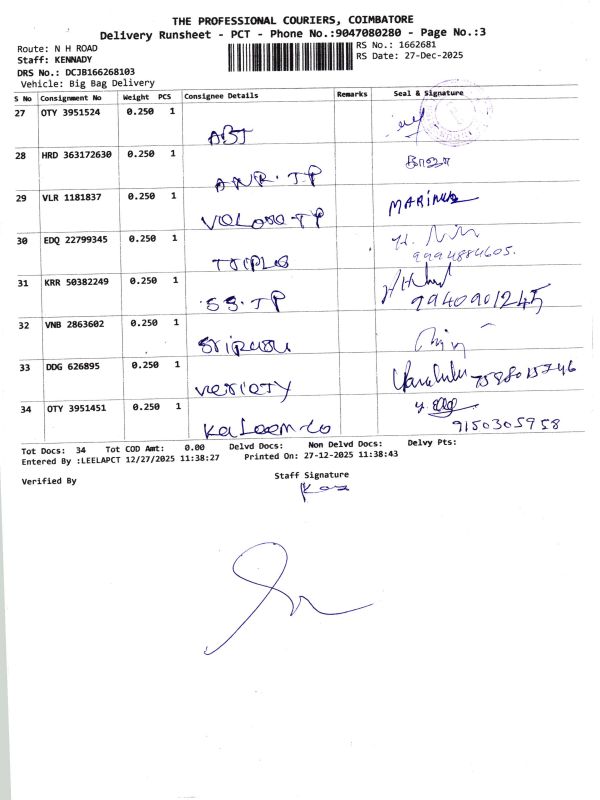 THE PROFESSIONAL COURIERS, COIMBATORE
Delivery Runsheet - PCT - Phone No.:9047080280 - Page No.:3
Route: N H ROAD
RS No.: 1662681
Staff: KENNADY
RS Date: 27-Dec-2025
DRS No.: DCJB166268103
Vehicle: Big Bag Delivery
S No Consignment No Weight PCS Consignee Details Remarks Seal & Signature
27 OTY 3951524 0.250 1 ABT
28 HRD 363172630 0.250 1 ANR.TP
29 VLR 1181837 0.250 1 TP MARIMU
30 EDQ 22799345 0.250 1
9994884605.
31 KRR 50382249 0.250 1 SS.TP
9940901245
32 VNB 2863602 0.250 1
33 DDG 626895 0.250 1 VARIETY
34 OTY 3951451 0.250 1
9150305958
Tot Docs: 34 Tot COD Amt: 0.00 Delvd Docs: Non Delvd Docs: Delvy Pts:
Entered By :LEELAPCT 12/27/2025 11:38:27 Printed On: 27-12-2025 11:38:43
Verified By
Staff Signature